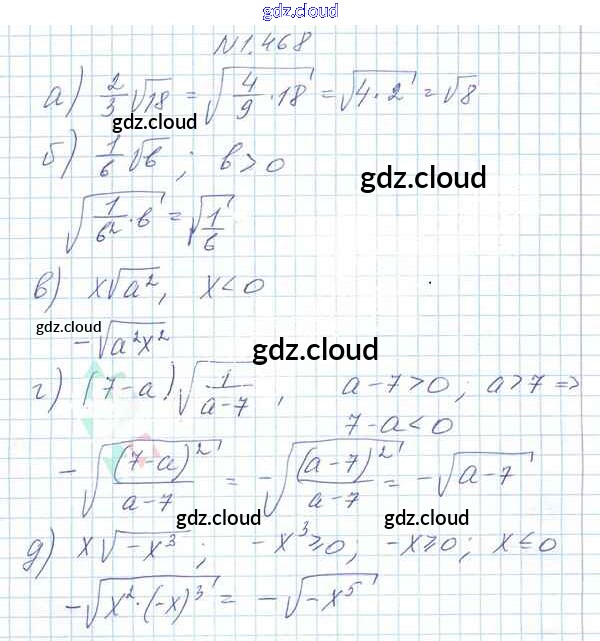 gdz.cloud
gdz.cloud
N 1.468
а) 2/3 √18 = √(4/9 · 18) = √(4·2) = √8
gdz.cloud
б) 1/b √b ; b > 0
gdz.cloud
√(1/b² · b) = √(1/b)
в) x√a², x < 0
gdz.cloud
-√(a²x²)
gdz.cloud
г) (7-a)√(1/(a-7)), a-7>0; a>7 =>
7-a<0
-√((7-a)²/(a-7)) = -√((a-7)²/(a-7)) = -√(a-7)
gdz.cloud
gdz.cloud
д) x√(-x³); -x³≥0; -x≥0; x≤0
-√(x²·(-x)³) = -√(-x⁵)
gdz.cloud
gdz.cloud